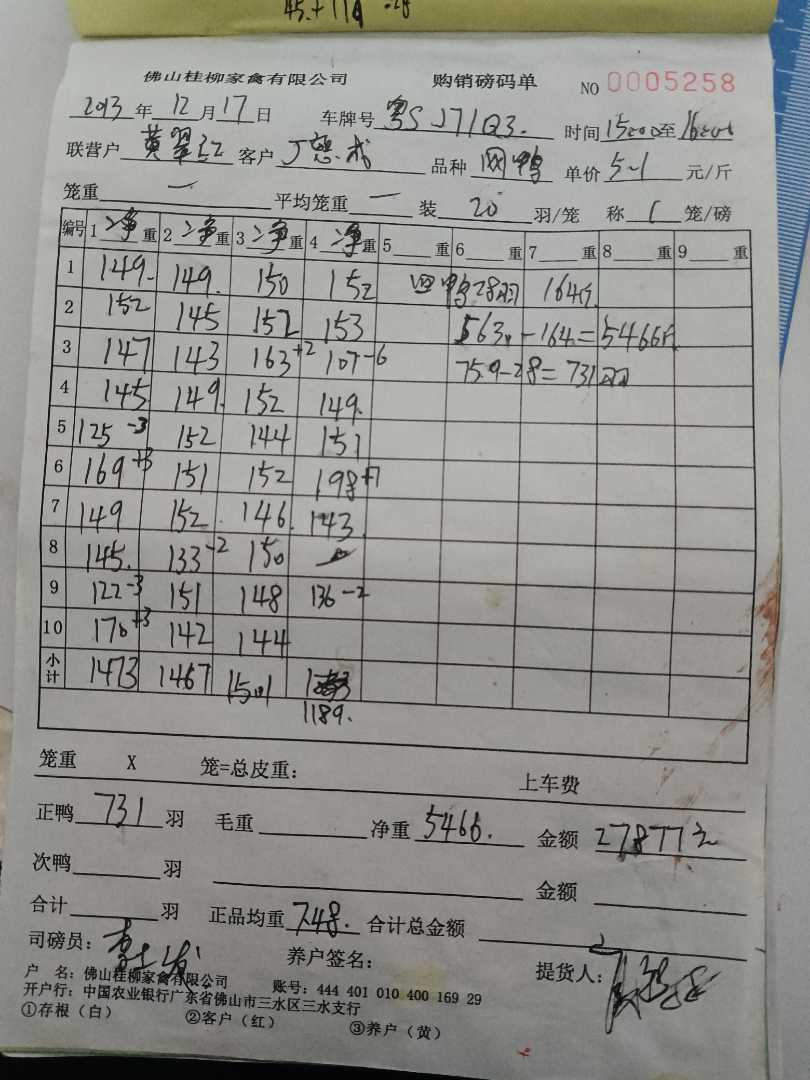 45.+119
佛山桂柳家禽有限公司 购销磅码单 NO 0005258
2013年12月17日 车牌号 粤S J71Q3. 时间 15:00至16:00
联营户 黄翠红 客户 品种 网鸭 单价 5-1 元/斤
笼重 一 平均笼重 一 装 20 羽/笼 称 1 笼/磅
编号 1 净重 2 净重 3 净重 4 净重 5 重 6 重 7 重 8 重 9 重
1 149. 149. 150 152 回鸭28羽 164斤.
2 152 145 152 153 5630 - 164 = 5466斤
3 147 143 163+2 107-6 759-28=731羽
4 145 149. 152 149.
5 125-3 152 144 151
6 169+3 151 152 198+7
7 149 152 146. 143
8 145. 133-2 150
9 122-3 151 148 136-2
10 170+3 142 144
小计 1473 1467 1501
1189.
笼重 X 笼=总皮重: 上车费
正鸭 731 羽 毛重 净重 5466. 金额 27877元
次鸭 羽 金额
合计 羽 正品均重 748. 合计总金额
司磅员: 养户签名: 提货人:
户 名: 佛山桂柳家禽有限公司
开户行: 中国农业银行广东省佛山市三水区三水支行 账号: 444 401 010 400 169 29
①存根(白) ②客户(红) ③养户(黄)